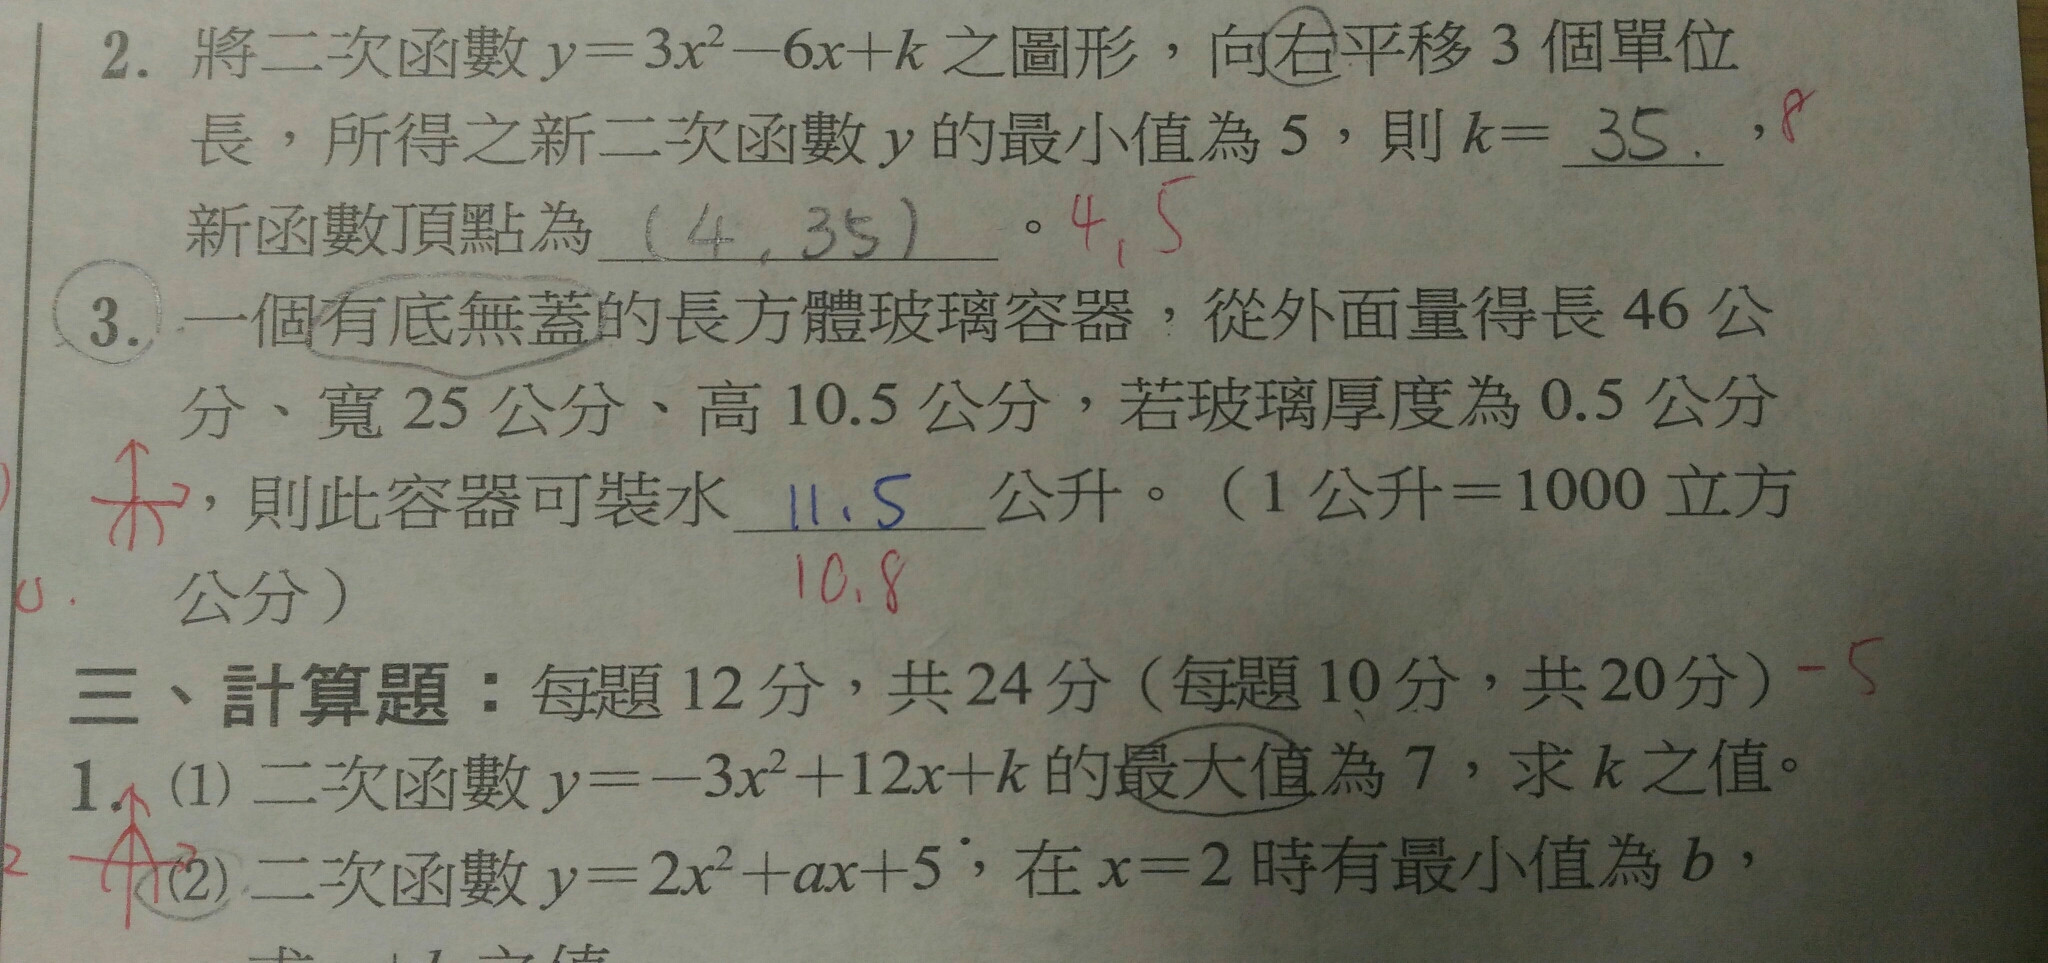 2. 將二次函數 y=3x²-6x+k 之圖形，向右平移 3 個單位
長，所得之新二次函數 y 的最小值為 5，則 k= 35. ，8
新函數頂點為 (4, 35) 。4, 5
3. 一個有底無蓋的長方體玻璃容器，從外面量得長 46 公
分、寬 25 公分、高 10.5 公分，若玻璃厚度為 0.5 公分
，則此容器可裝水 11.5 公升。（1 公升=1000 立方
10.8
公分）
三、計算題：每題 12 分，共 24 分（每題 10 分，共 20 分）-5
1. (1) 二次函數 y=-3x²+12x+k 的最大值為 7，求 k 之值。
(2) 二次函數 y=2x²+ax+5，在 x=2 時有最小值為 b，
之值